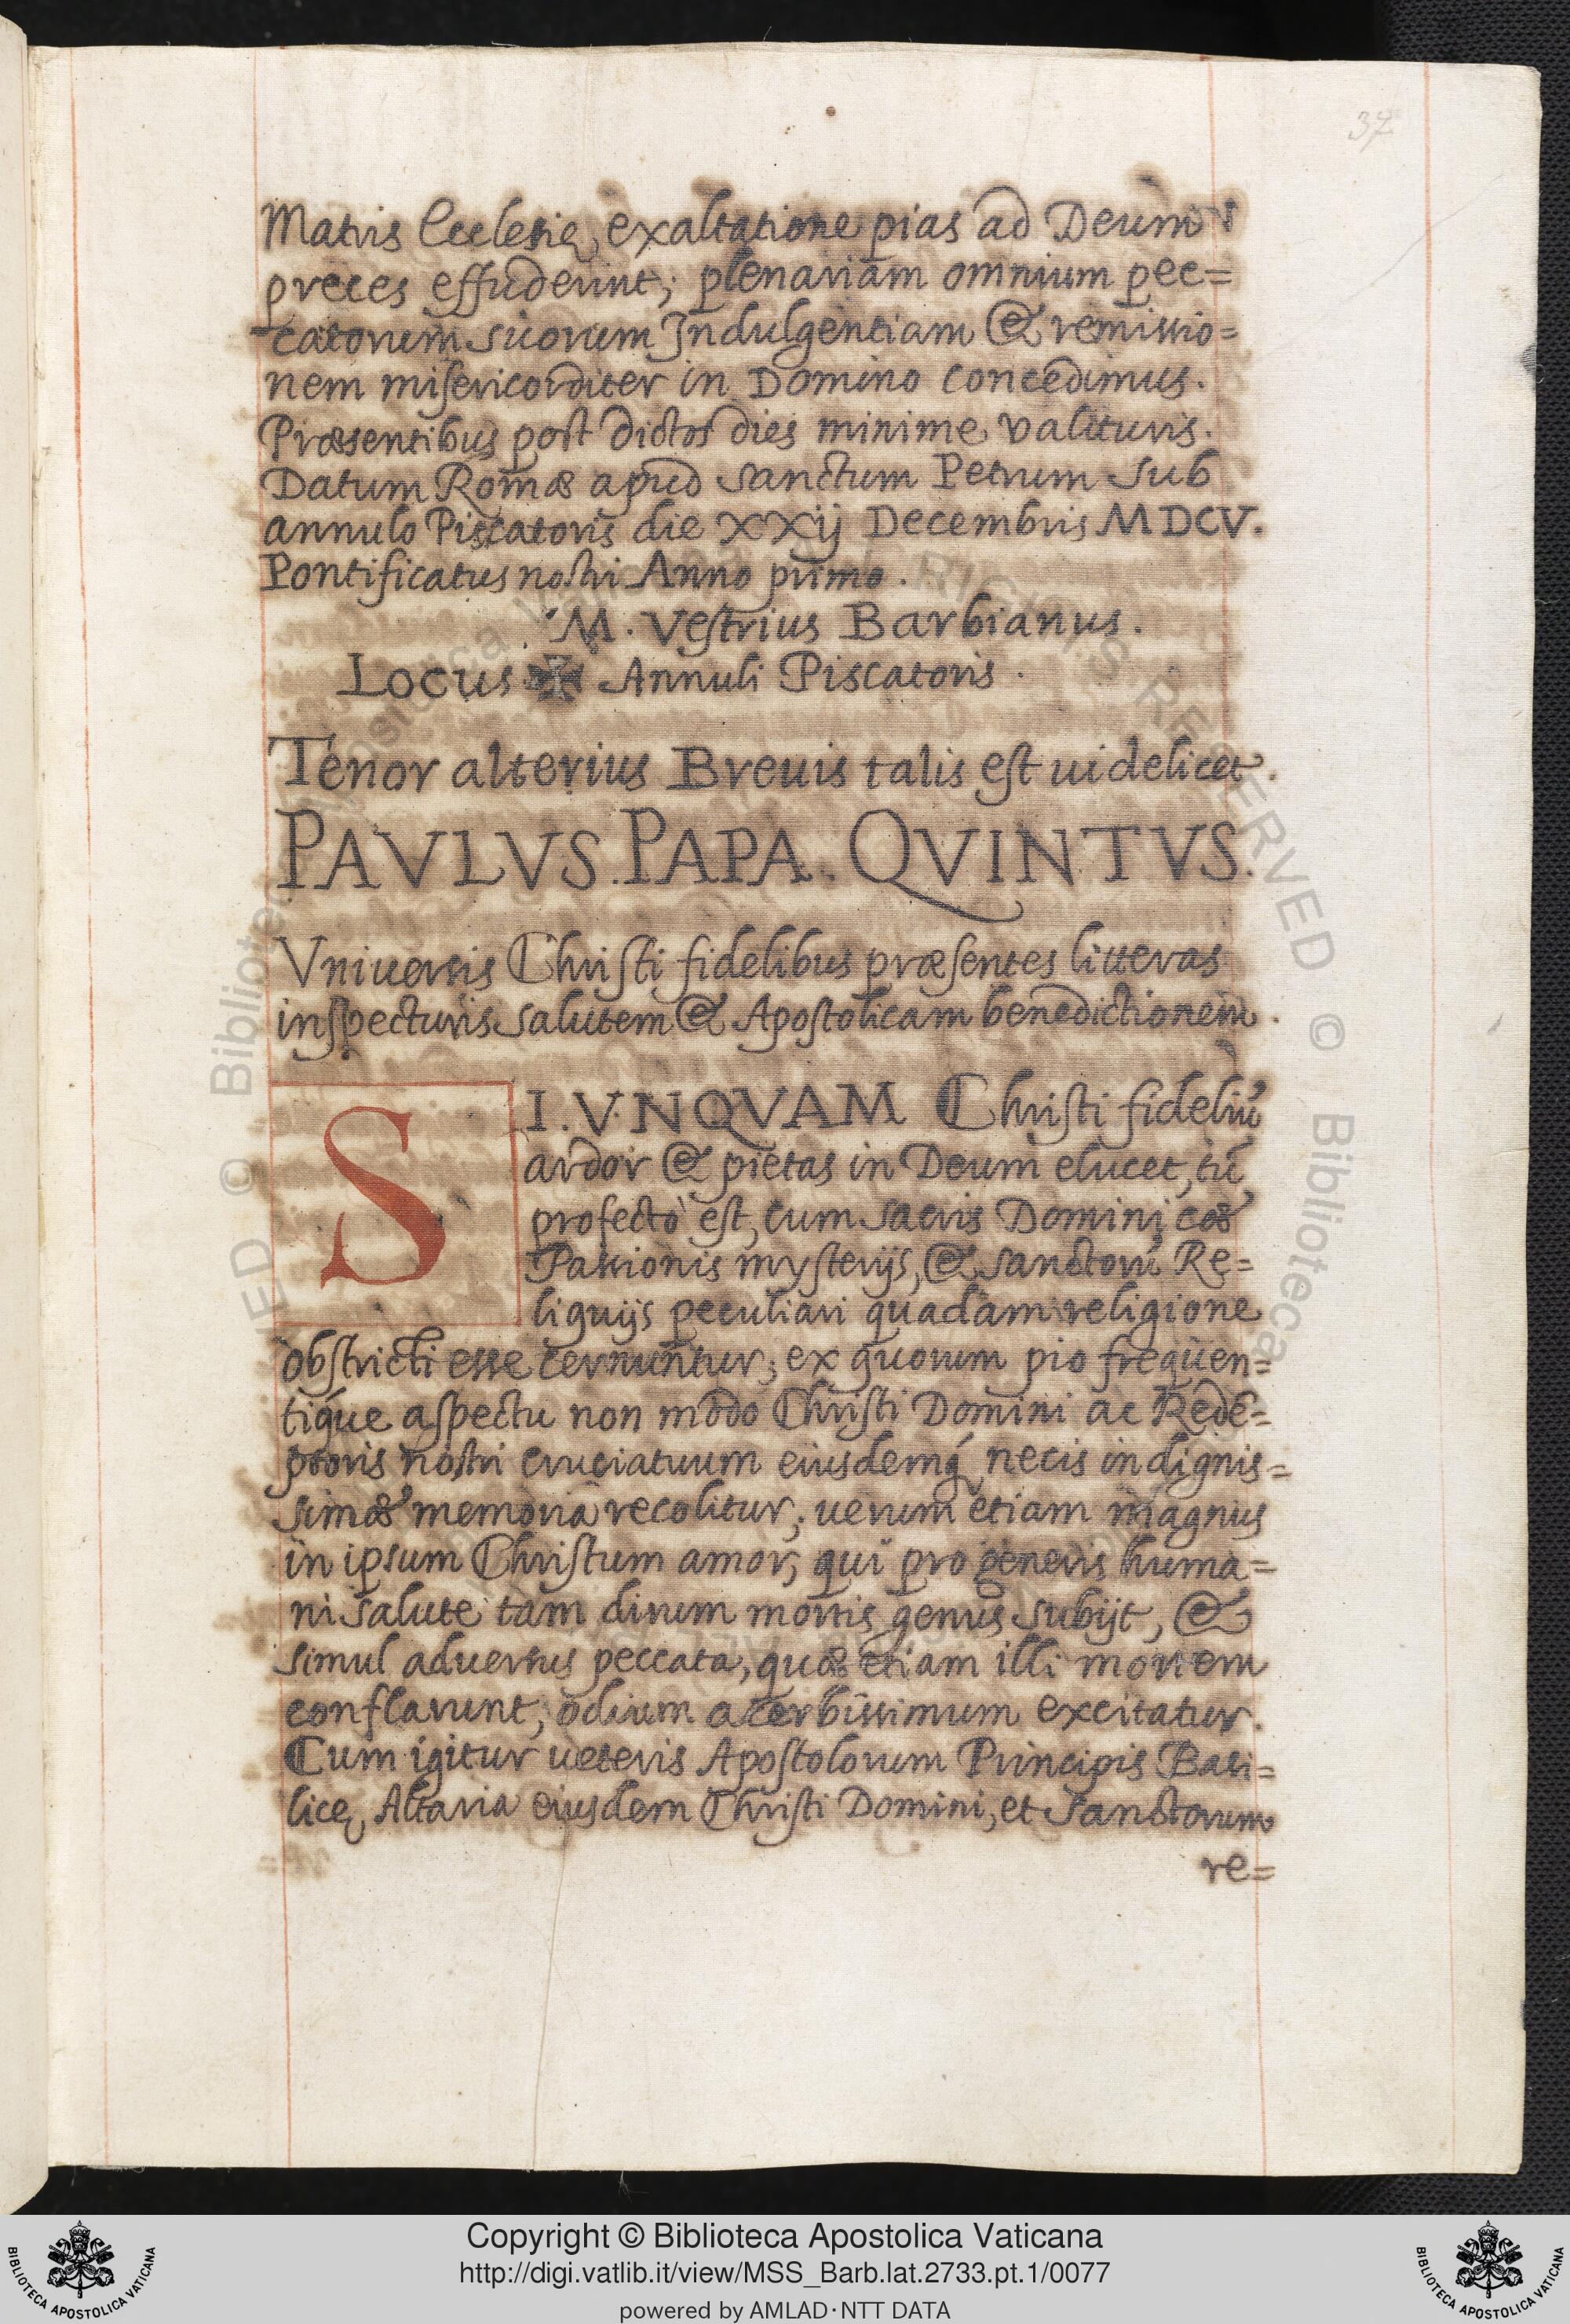 37
Matris Ecclesię exaltatione pias ad Deum
preces effuderint; plenariam omnium pec=
catorum suorum Indulgentiam & remissio=
nem misericorditer in Domino concedimus.
Præsentibus post dictos dies minime valituris.
Datum Romæ apud Sanctum Petrum sub
annulo Piscatoris die XXij Decembris MDCV.
Pontificatus nostri Anno primo.
M. Vestrius Barbianus.
Locus ✠ Annuli Piscatoris.
Tenor alterius Breuis talis est uidelicet.
PAVLVS. PAPA. QVINTVS.
Vniuersis Christi fidelibus præsentes litteras
inspecturis salutem & Apostolicam benedictionem.
SI. VNQVAM Christi fideliũ
ardor & pietas in Deum elucet, tũ
profectò est, cum sacris Dominicæ
Passionis mysterijs, & sanctorũ Re=
liquijs peculiari quadam religione
obstricti esse cernuntur; ex quorum pio frequen=
tique aspectu non modo Christi Domini ac Redẽ=
ptoris nostri cruciatuum eiusdemq́ necis indignis=
simæ memoria recolitur; uerum etiam magnus
in ipsum Christum amor, qui pro generis huma=
ni salute tam dirum mortis genus subijt, &
simul aduersus peccata, quæ etiam illi mortem
conflarunt, odium acerbissimum excitatur.
Cum igitur ueteris Apostolorum Principis Basi=
licę Altaria eiusdem Christi Domini, et Sanctorum
re=
Copyright © Biblioteca Apostolica Vaticana
http://digi.vatlib.it/view/MSS_Barb.lat.2733.pt.1/0077
powered by AMLAD·NTT DATA
BIBLIOTECA APOSTOLICA VATICANA
BIBLIOTECA APOSTOLICA VATICANA